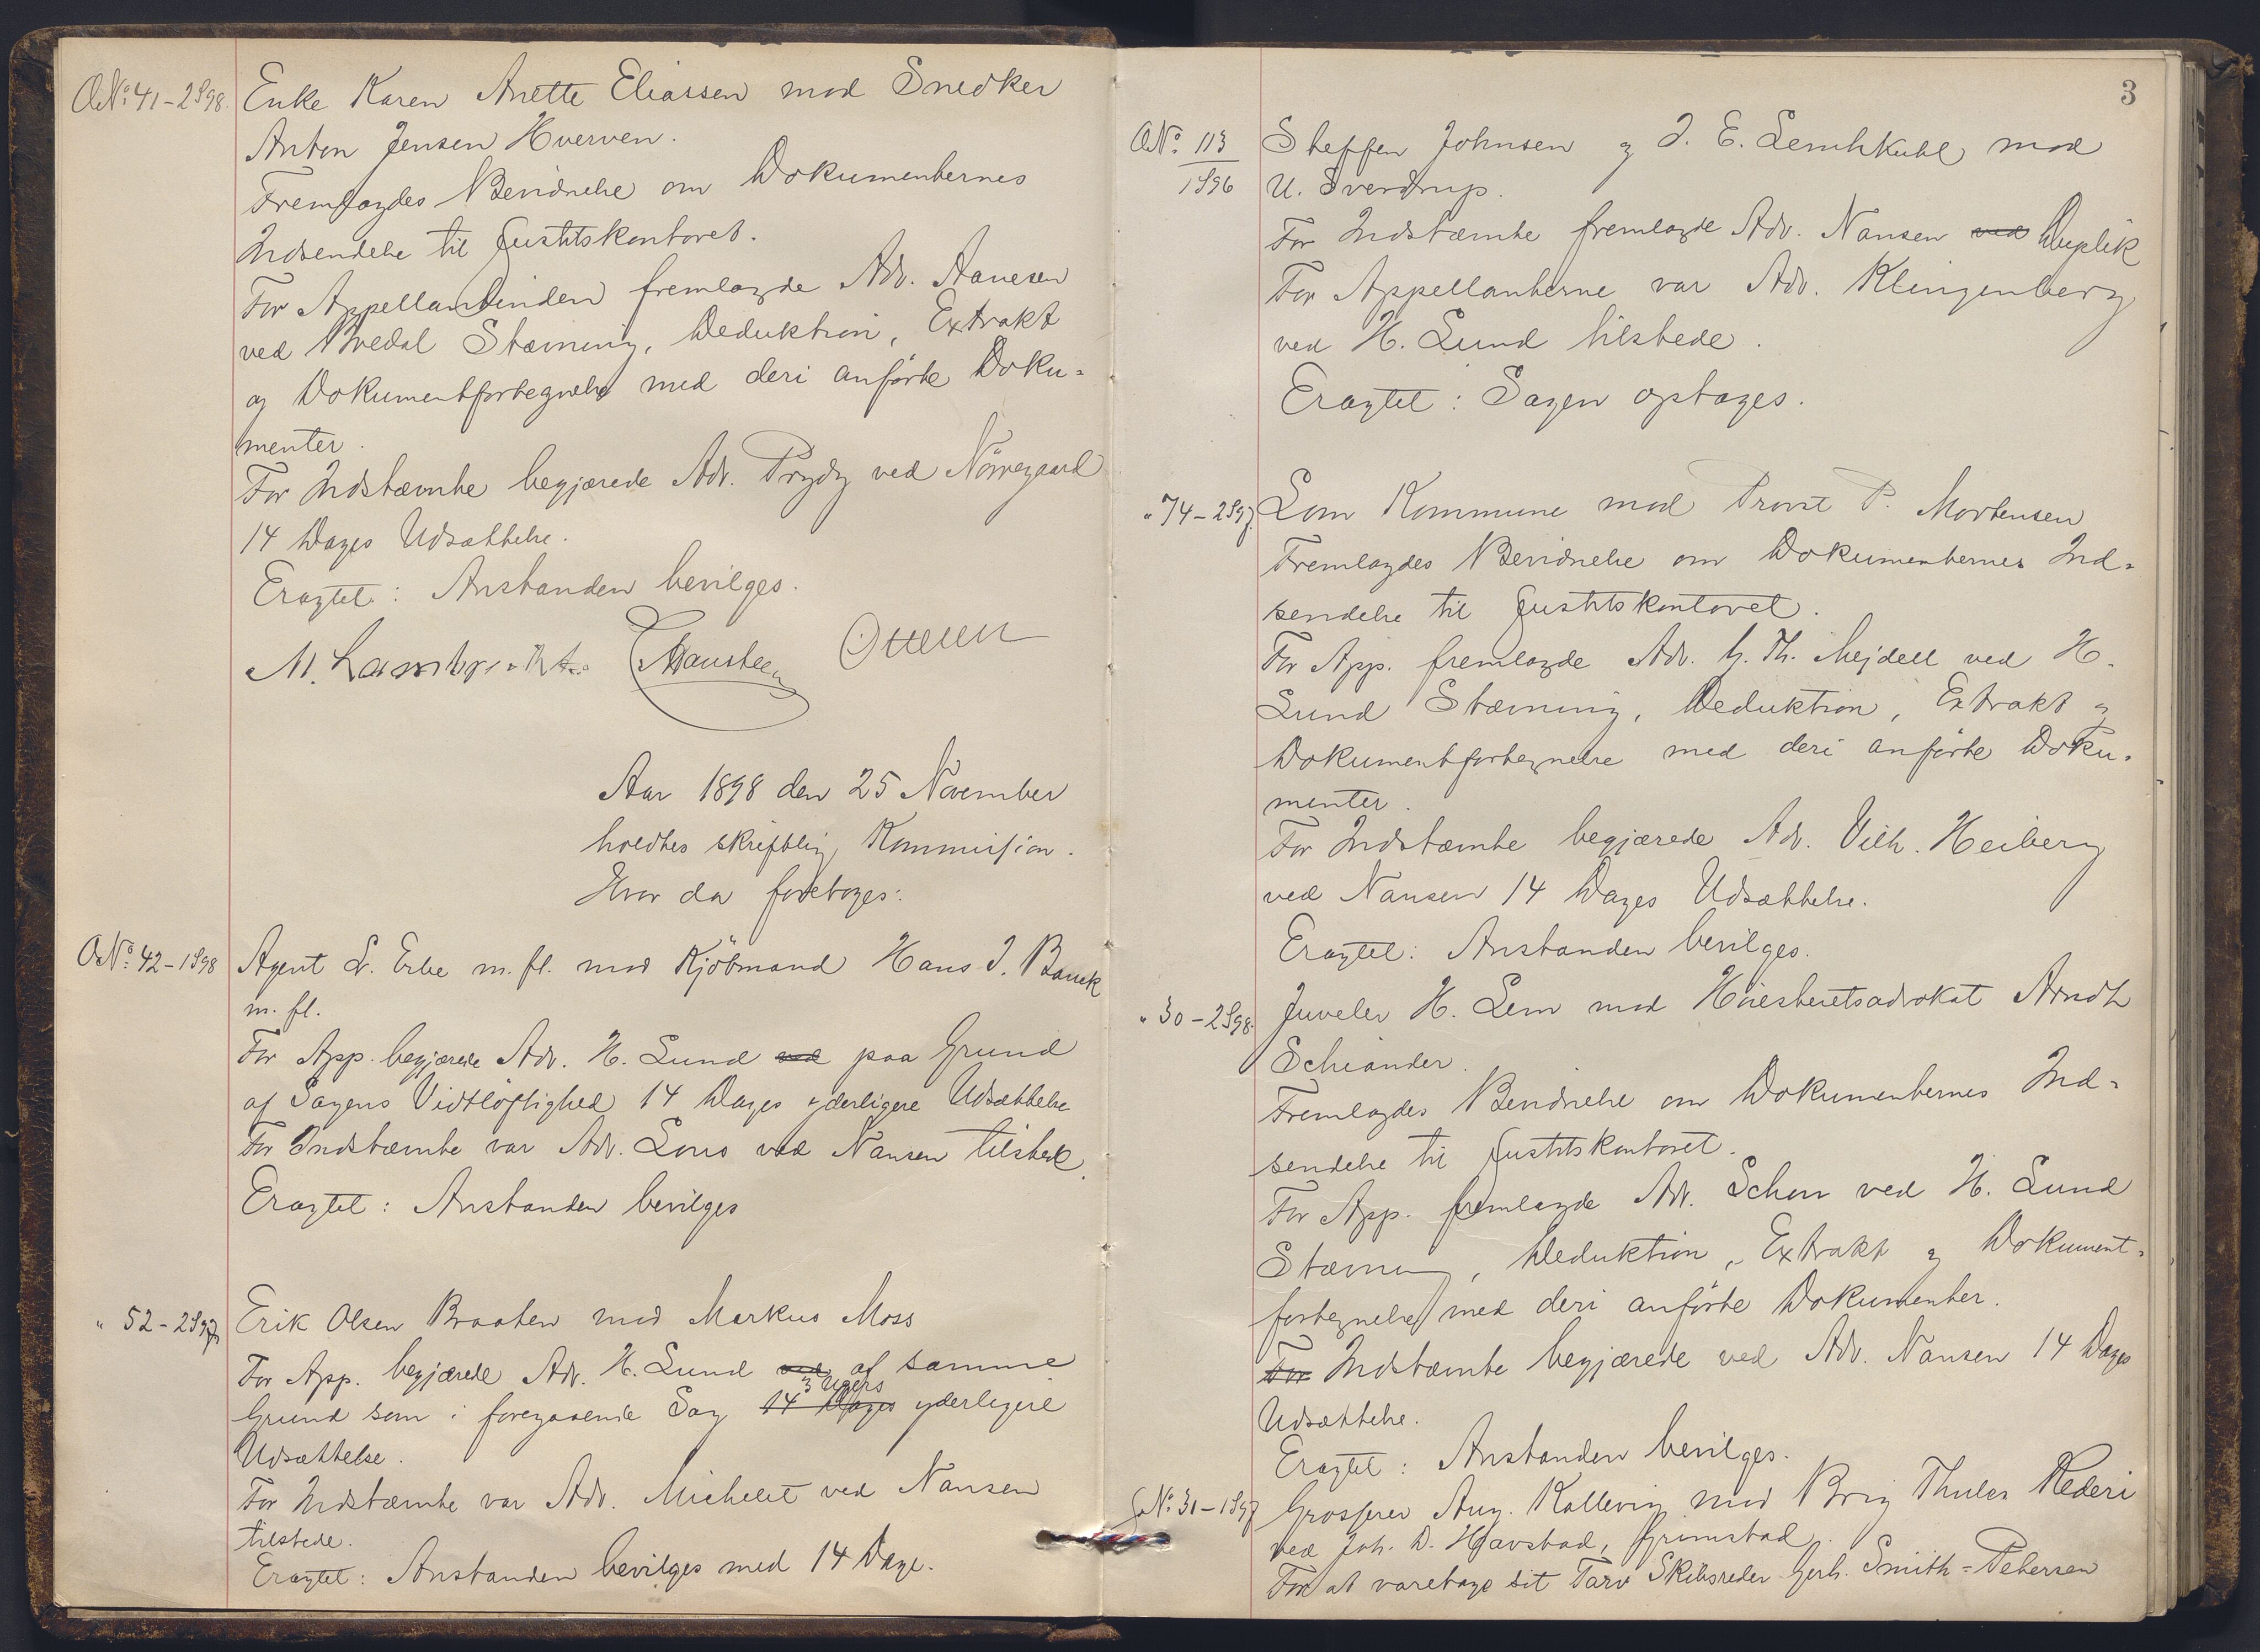 O.No. 41-2S98. Enke Karen Anette Eliassen mod Snedker
Anton Jensen Hverven.
Fremlagdes Bevidnelse om Dokumenternes
Indsendelse til Justitskontoret.
For Appellantinden fremlagde Adv. Aanesen
ved Bredal Stævning, Deduktion, Extrakt
og Dokumentfortegnelse med deri anførte Doku-
menter.
For Indstævnte begjærede Adv. Prydz ved Nörregaard
14 Dages Udsættelse.
Eragtet: Anstanden bevilges.
M. Lambrechts. Hansteen Ottesen
Aar 1898 den 25 November
holdtes skriftlig Kommission.
Hvor da foretoges:
O.No. 42-1S98 Agent L. Erbe m. fl. mod Kjöbmand Hans J. Banck
m. fl.
For App. begjærede Adv. H. Lund ved paa Grund
af Sagens Vidtlöftighed 14 Dages yderligere Udsættelse
For Indstævnte var Adv. Lous ved Nansen tilstede.
Eragtet: Anstanden bevilges
" 52-2S97 Erik Olsen Braaten mod Markus Moss
For App. begjærede Adv. H. Lund ved af samme
3 Ugers
Grund som i foregaaende Sag 14 Dages yderligere
Udsættelse.
For Indstævnte var Adv. Michelet ved Nansen
tilstede.
Eragtet: Anstanden bevilges med 14 Dage.
3
O.No. 113/1S96 Steffen Johnsen og J. E. Lemhkuhl mod
U. Sverdrup.
For Indstævnte fremlagde Adv. Nansen ved Duplik
For Appellanterne var Adv. Klingenberg
ved H. Lund tilstede.
Eragtet: Sagen optages.
" 74-2S97 Lom Kommune mod Provst P. Mortensen
Fremlagdes Bevidnelse om Dokumenternes Ind-
sendelse til Justitskontoret.
For App. fremlagde Adv. G. Th. Mejdell ved H.
Lund Stævning, Deduktion, Extrakt og
Dokumentfortegnelse med deri anførte Doku-
menter.
For Indstævnte begjærede Adv. Vilh. Heiberg
ved Nansen 14 Dages Udsættelse.
Eragtet: Anstanden bevilges.
" 30-2S98. Juveler H. Lem mod Høiesteretsadvokat Arndt
Schiander.
Fremlagdes Bevidnelse om Dokumenternes Ind-
sendelse til Justitskontoret.
For App. fremlagde Adv. Schou ved H. Lund
Stævning, Deduktion, Extrakt og Dokument-
fortegnelse med deri anførte Dokumenter.
For Indstævnte begjærede ved Adv. Nansen 14 Dages
Udsættelse.
Eragtet: Anstanden bevilges.
S.No. 31-1S97 Grosserer Aug. Kallevig mod Brig Thules Rederi
ved Joh. D. Havstad, Grimstad.
For at varetage sit Tarv Skibsreder Gerh. Smith-Petersen